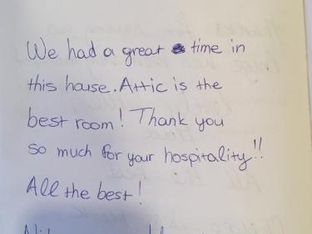 We had a great time in
this house. Attic is the
best room! Thank you
so much for your hospitality!!
All the best!